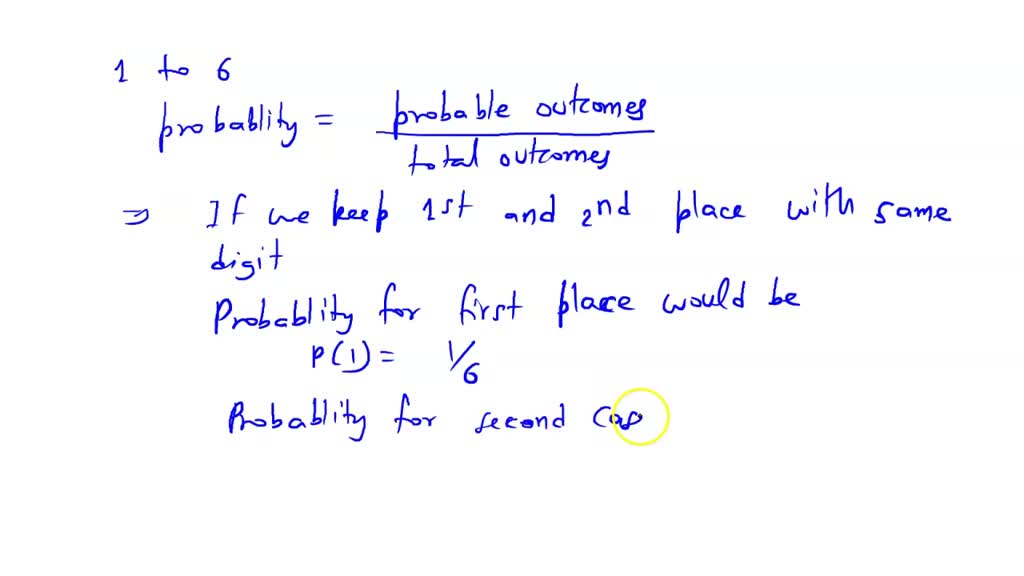 1 to 6
probablity = probable outcomes / total outcomes
⇒ If we keep 1st and 2nd place with same
digit
Probablity for first place would be
P(1) = 1/6
Probablity for second cas